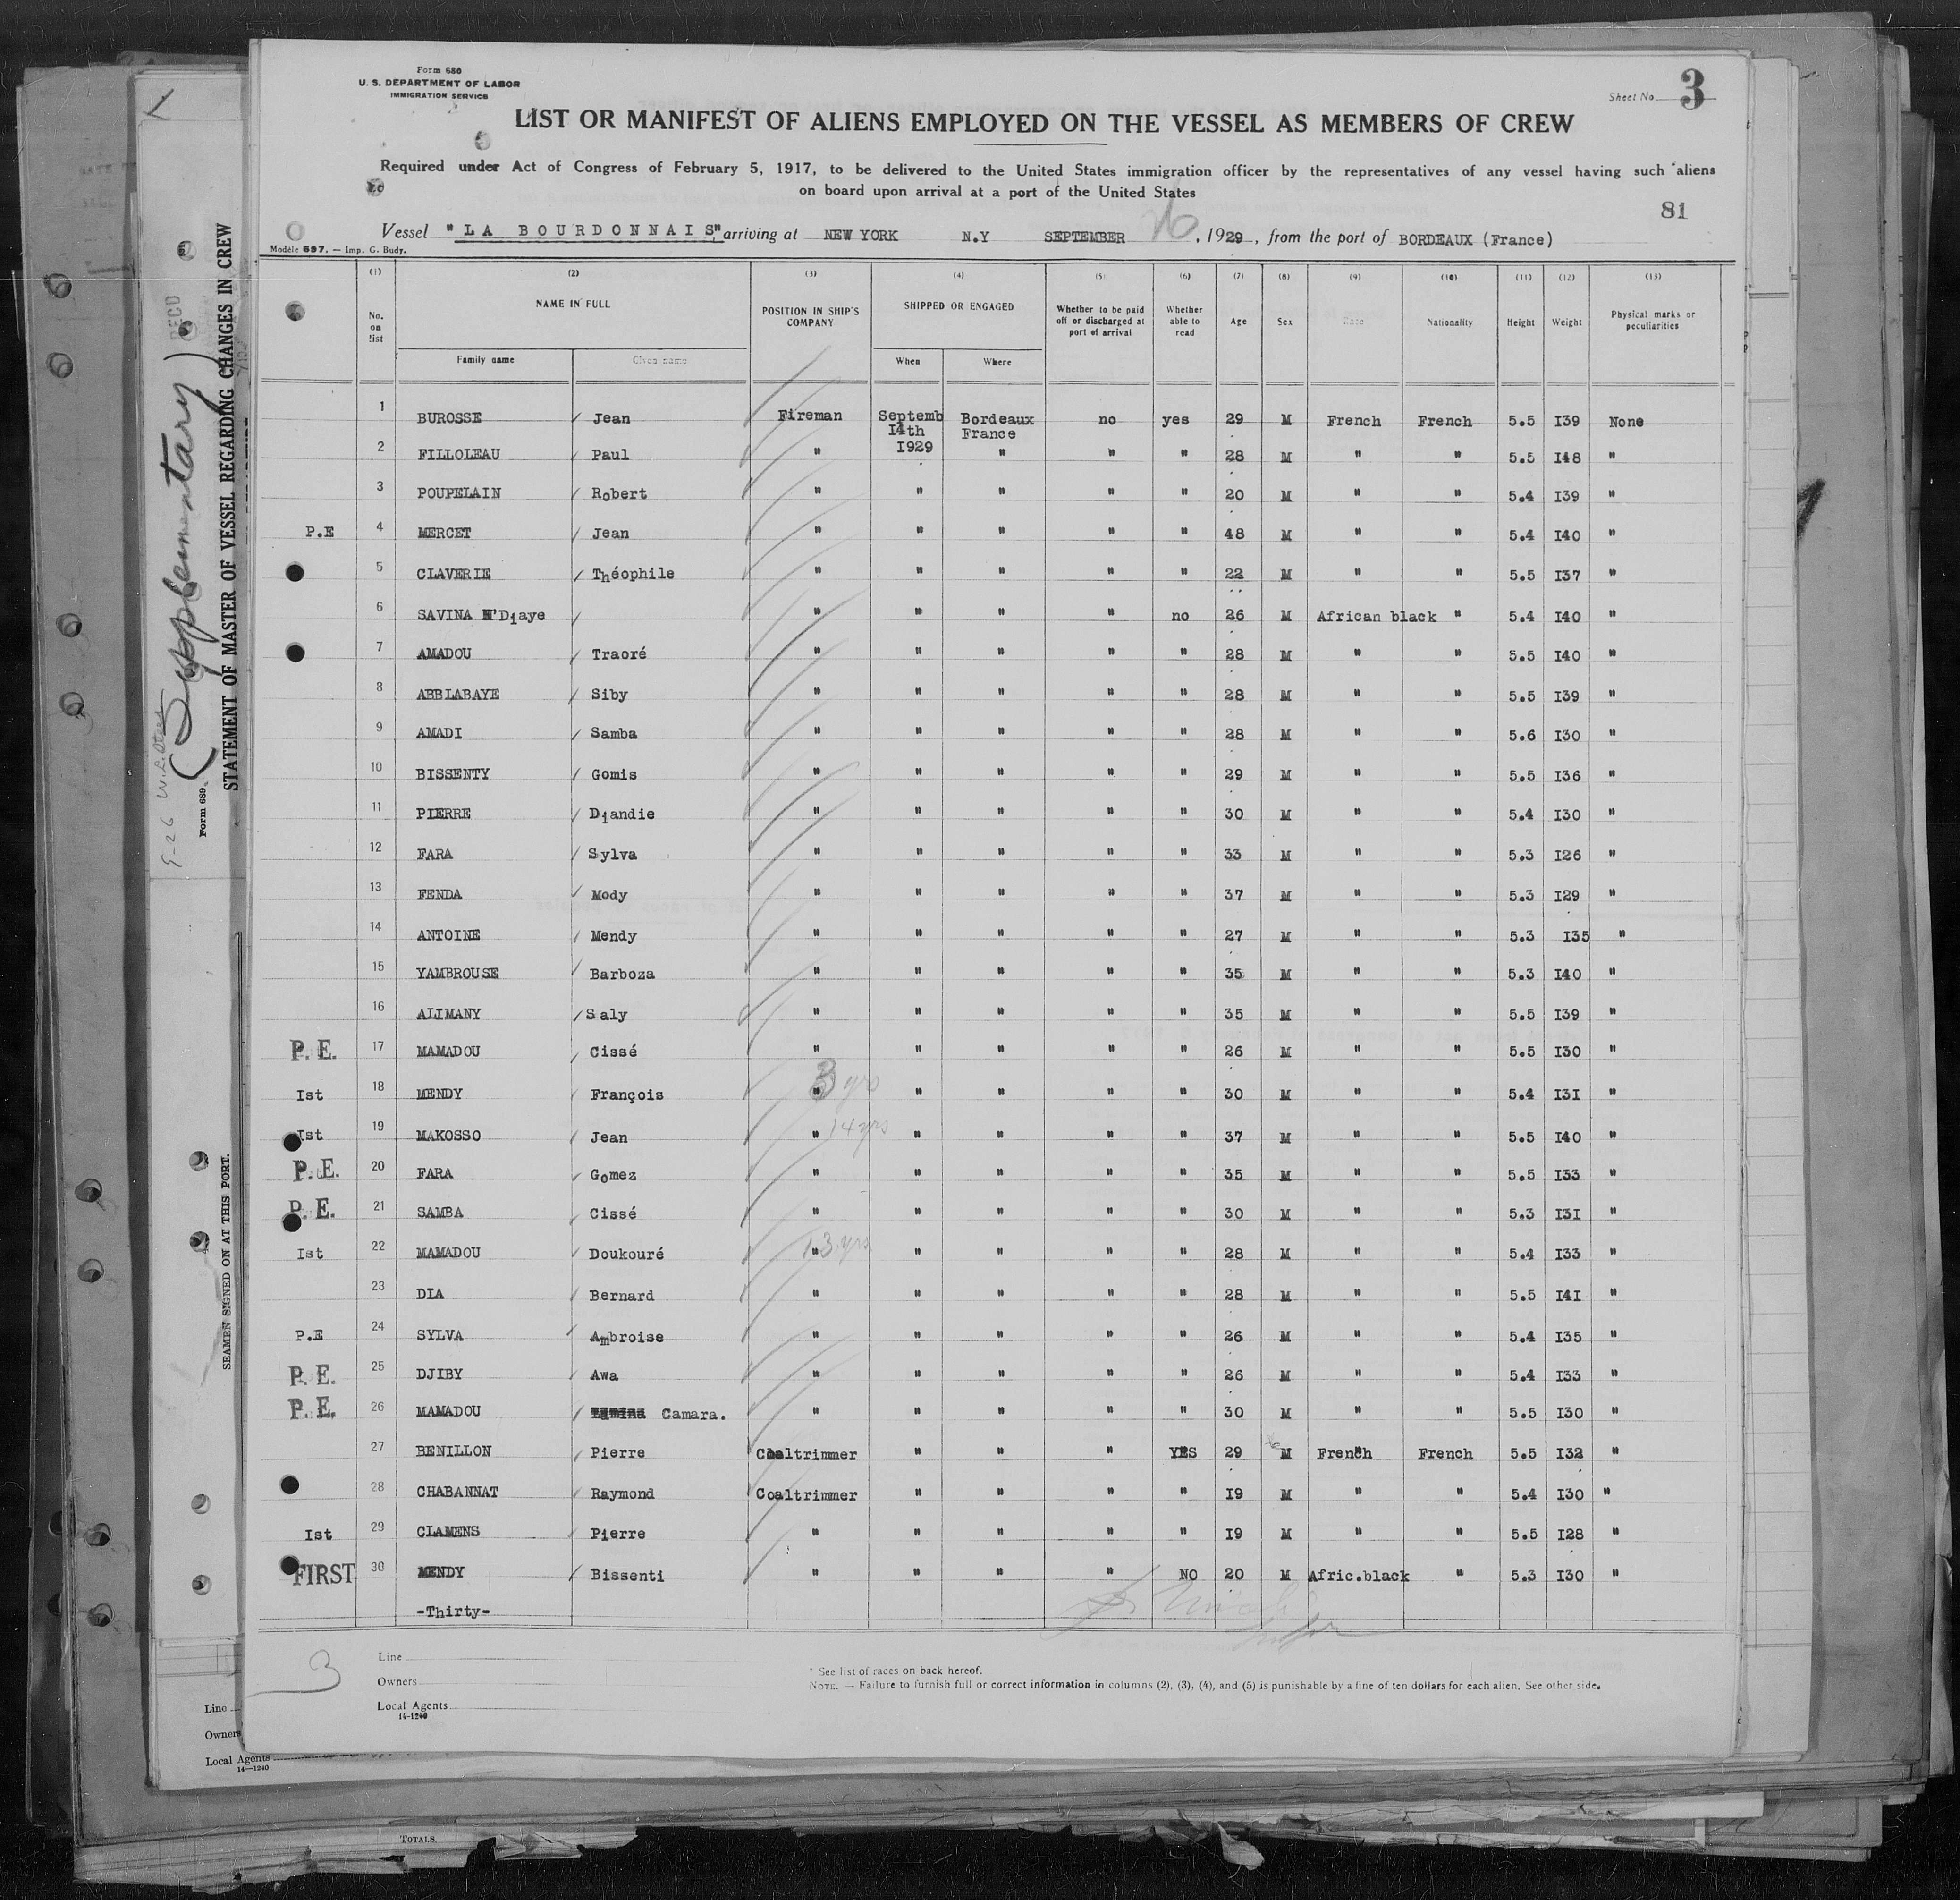 Form 680
U. S. DEPARTMENT OF LABOR
IMMIGRATION SERVICE
Sheet No. 3
LIST OR MANIFEST OF ALIENS EMPLOYED ON THE VESSEL AS MEMBERS OF CREW
Required under Act of Congress of February 5, 1917, to be delivered to the United States immigration officer by the representatives of any vessel having such aliens
on board upon arrival at a port of the United States
81
Vessel "LA BOURDONNAIS" arriving at NEW YORK N.Y SEPTEMBER 26, 1929, from the port of BORDEAUX (France)
Modèle 697. — Imp. G. Budy.
(1) (2) (3) (4) (5) (6) (7) (8) (9) (10) (11) (12) (13)
No. on list NAME IN FULL POSITION IN SHIP'S COMPANY SHIPPED OR ENGAGED Whether to be paid off or discharged at port of arrival Whether able to read Age Sex Race Nationality Height Weight Physical marks or peculiarities
Family name Given name When Where
1 BUROSSE Jean Fireman Septemb I4th I929 Bordeaux France no yes 29 M French French 5.5 I39 None
2 FILLOLEAU Paul " " " " 28 M " " 5.5 I48 "
3 POUPELAIN Robert " " " " " 20 M " " 5.4 I39 "
P.E 4 MERCET Jean " " " " " 48 M " " 5.4 I40 "
5 CLAVERIE Théophile " " " " " 22 M " " 5.5 I37 "
6 SAVINA N'Diaye " " " " no 26 M African black " 5.4 I40 "
7 AMADOU Traoré " " " " " 28 M " " 5.5 I40 "
8 ABBLABAYE Siby " " " " " 28 M " " 5.5 I39 "
9 AMADI Samba " " " " " 28 M " " 5.6 I30 "
10 BISSENTY Gomis " " " " " 29 M " " 5.5 I36 "
11 PIERRE Diandie " " " " " 30 M " " 5.4 I30 "
12 FARA Sylva " " " " " 33 M " " 5.3 I26 "
13 FENDA Mody " " " " " 37 M " " 5.3 I29 "
14 ANTOINE Mendy " " " " " 27 M " " 5.3 I35 "
15 YAMBROUSE Barboza " " " " " 35 M " " 5.3 I40 "
16 ALIMANY Saly " " " " " 35 M " " 5.5 I39 "
P. E. 17 MAMADOU Cissé " " " " " 26 M " " 5.5 I30 "
Ist 18 MENDY François " 3 yrs " " " " 30 M " " 5.4 I3I "
Ist 19 MAKOSSO Jean " 14 yrs " " " " 37 M " " 5.5 I40 "
P. E. 20 FARA Gomez " " " " " 35 M " " 5.5 I33 "
P. E. 21 SAMBA Cissé " " " " " 30 M " " 5.3 I3I "
Ist 22 MAMADOU Doukouré " 13 yrs " " " " 28 M " " 5.4 I33 "
23 DIA Bernard " " " " " 28 M " " 5.5 I4I "
P.E 24 SYLVA Ambroise " " " " " 26 M " " 5.4 I35 "
P. E. 25 DJIBY Awa " " " " " 26 M " " 5.4 I33 "
P. E. 26 MAMADOU Camara. " " " " " 30 M " " 5.5 I30 "
27 BENILLON Pierre Coaltrimmer " " " YES 29 M French French 5.5 I32 "
28 CHABANNAT Raymond Coaltrimmer " " " " I9 M " " 5.4 I30 "
Ist 29 CLAMENS Pierre " " " " " I9 M " " 5.5 I28 "
FIRST 30 MENDY Bissenti " " " " NO 20 M Afric.black " 5.3 I30 "
-Thirty-
3
Line
Owners
Local Agents
14-1240
* See list of races on back hereof.
NOTE. — Failure to furnish full or correct information in columns (2), (3), (4), and (5) is punishable by a fine of ten dollars for each alien. See other side.
(Supplementary)
Form 689.
STATEMENT OF MASTER OF VESSEL REGARDING CHANGES IN CREW
SEAMEN SIGNED ON AT THIS PORT.
RECD
9-26
Line
Owners
Local Agents
14—1240
TOTALS.